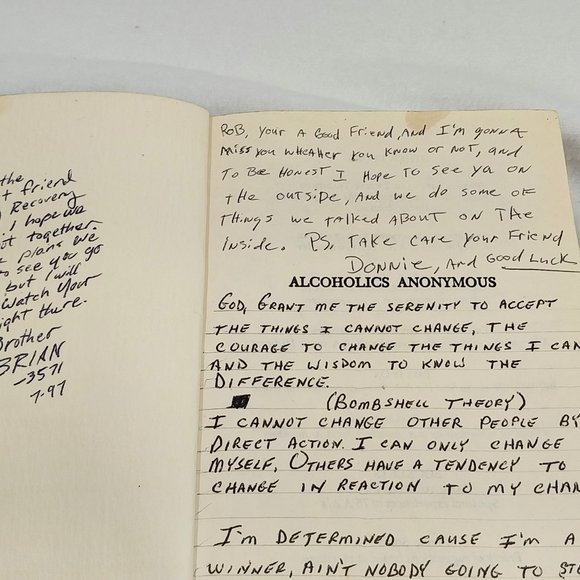 the
friend
Recovery
I hope we
ot together.
plans we
to see you go
but I will
Watch your
ight there.
Brother
BRIAN
-3571
7-97
ROB, YOUR A GOOD FRIEND, AND I'M GONNA
MISS YOU WHEATHER YOU KNOW OR NOT, AND
TO BEE HONEST I HOPE TO SEE YA ON
THE OUTSIDE, AND WE DO SOME OF
THINGS WE TALKED ABOUT ON THE
INSIDE. PS. TAKE CARE YOUR FRIEND
DONNIE, AND GOOD LUCK
ALCOHOLICS ANONYMOUS
GOD, GRANT ME THE SERENITY TO ACCEPT
THE THINGS I CANNOT CHANGE, THE
COURAGE TO CHANGE THE THINGS I CAN
AND THE WISDOM TO KNOW THE
DIFFERENCE.
(BOMBSHELL THEORY)
I CANNOT CHANGE OTHER PEOPLE BY
DIRECT ACTION. I CAN ONLY CHANGE
MYSELF, OTHERS HAVE A TENDENCY TO
CHANGE IN REACTION TO MY CHAN
I'M DETERMINED CAUSE I'M A
WINNER, AIN'T NOBODY GOING TO STO